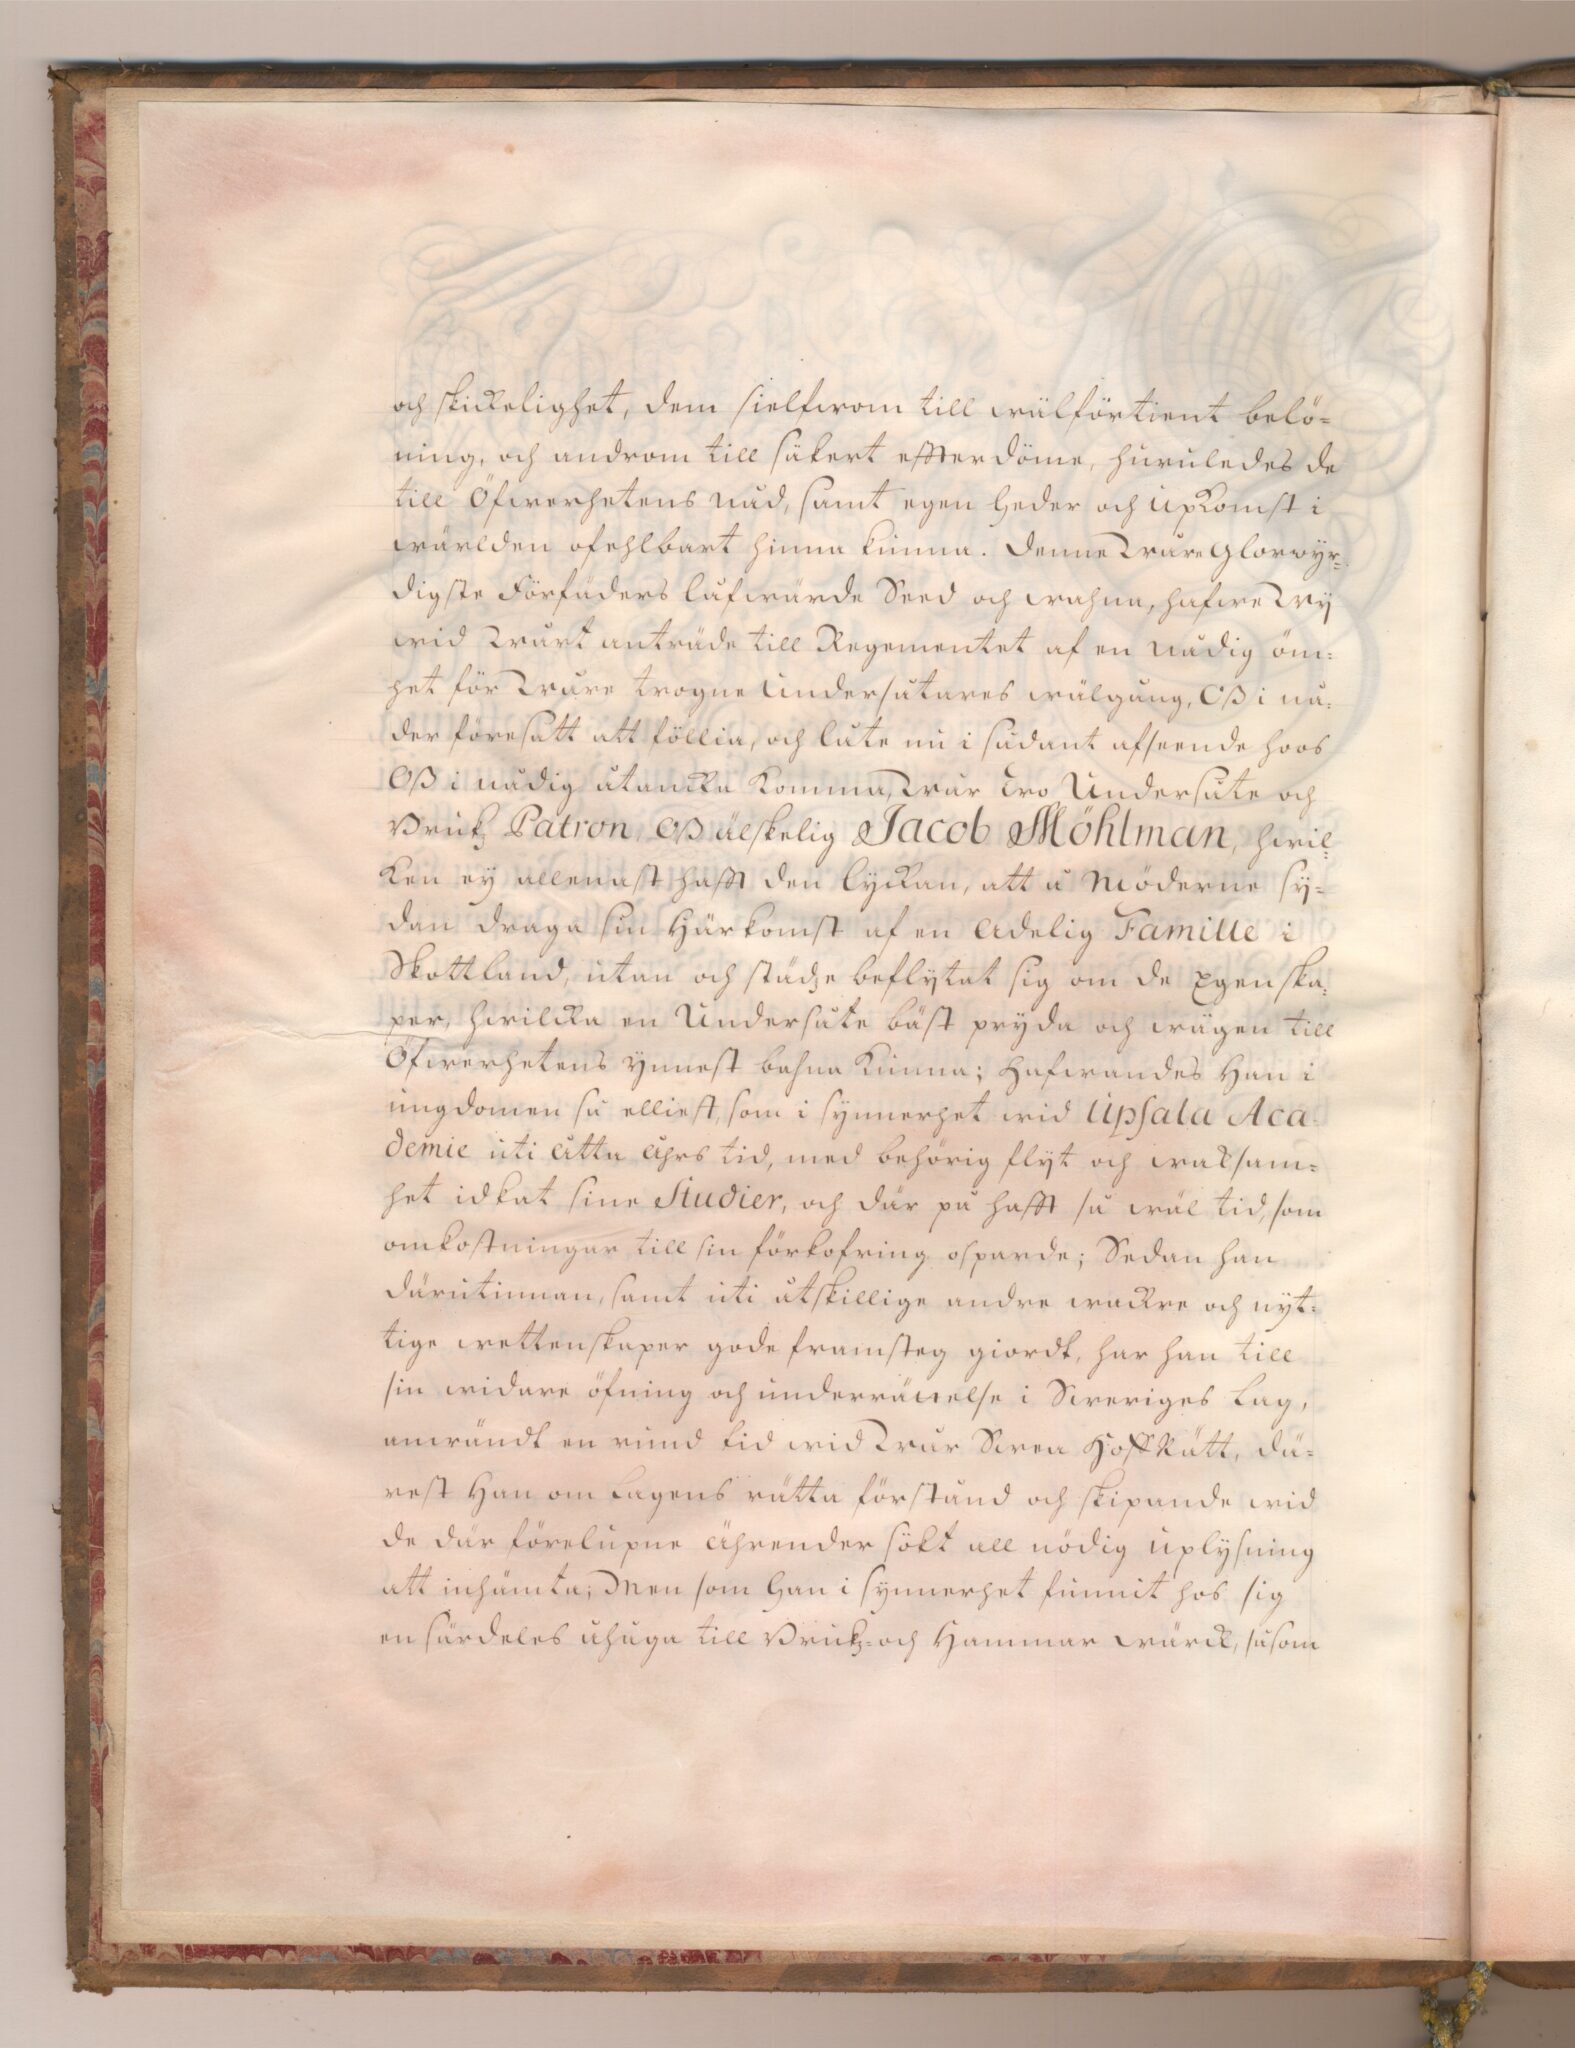 och skickelighet, dem sielfwom till wälförtient belö=
ning, och androm till säkert effterdöme, huruledes de
till Öfwerhetens nåd, samt egen heder och upkomst i
wärlden ofehlbart hinna kunna. Denne Wåre Glorwyr=
digste Förfäders låfwärde Seed och wahna, hafwe Wij
wid Wårt anträde till Regementet af en nådig öm=
het för Wåre trogne Undersåtares wälgång, Oß i nå=
der föresatt att föllia, och låte nu i sådant afseende hoos
Oß i nådig åtancka komma, Wår Tro Undersåte och
Brukz Patron, Oß älskelig Jacob Möhlman, hwil=
ken ey allenast hafft den lyckan, att å Möderne sy=
dan draga sin Härkomst af en Adelig Famille i
Skottland, utan och städze beflytat sig om de Egenska=
per, hwilcka en Undersåte bäst pryda och wägen till
Öfwerhetens ynnest bahna kunna; Hafwandes Han i
ungdomen så elliest, som i synnerhet wid Upsala Aca=
demie uti Åtta Åhrs tid, med behörig flyt och waksam=
het idkat sine Studier, och där på hafft så wäl tid, som
omkostningar till sin förkofring osparde; Sedan han
därutinnan, samt uti åtskillige andre wackre och nyt=
tige wettenskaper gode framsteg giordt, har han till
sin widare öfning och underrättelse i Sweriges Lag,
anwändt en rund tid wid Wår Swea HoffRätt, dä=
rest Han om Lagens rätta förstånd och skipande wid
de där förelupne Ährender sökt all nödig uplysning
att inhämta; Men som han i synnerhet funnit hos sig
en särdeles åhuga till Brukz= och Hammar wärck, såsom